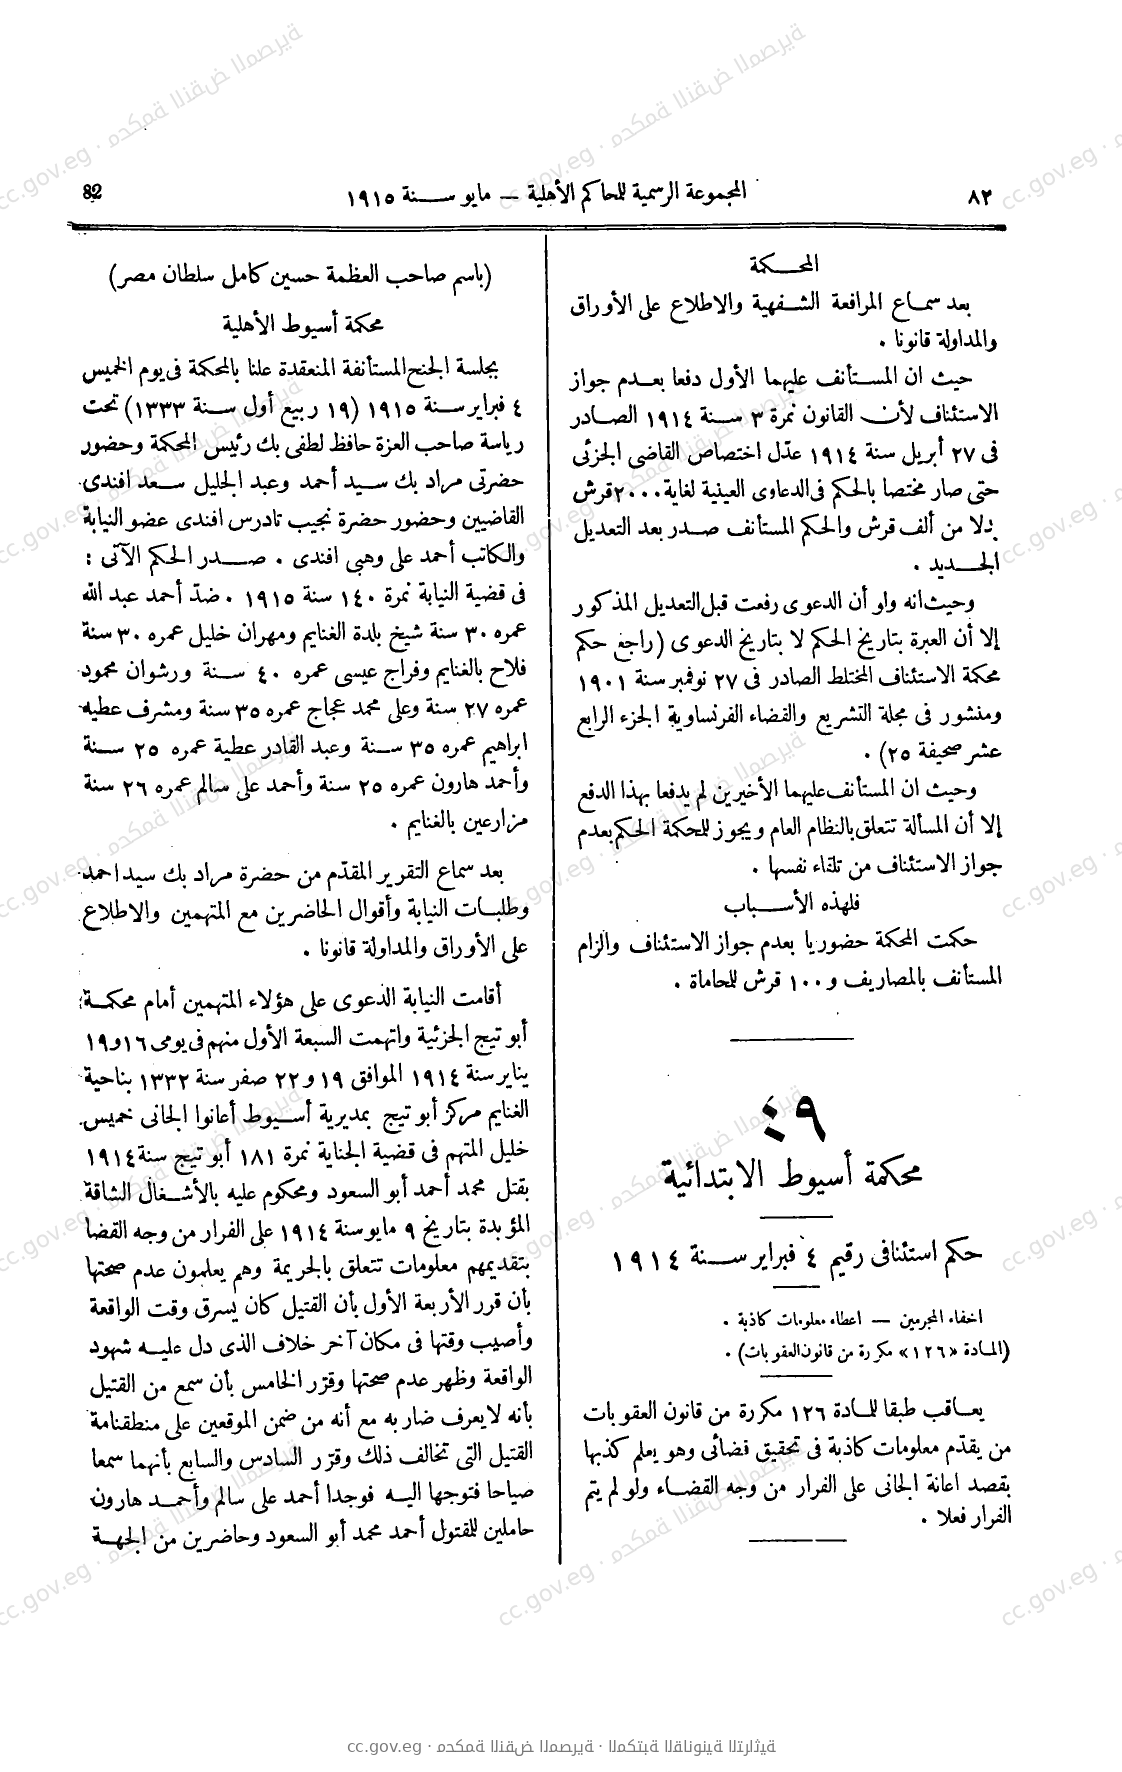 ٨٢
المجموعة الرسمية للمحاكم الأهلية — مايو سنة ١٩١٥
82
المحكمة
بعد سماع المرافعة الشفهية والاطلاع على الأوراق
والمداولة قانونا .
حيث ان المستأنف عليهما الأول دفعا بعدم جواز
الاستئناف لأن القانون نمرة ٣ سنة ١٩١٤ الصادر
فى ٢٧ أبريل سنة ١٩١٤ عدّل اختصاص القاضى الجزئى
حتى صار مختصا بالحكم فى الدعاوى العينية لغاية ٢٠٠٠ قرش
بدلا من ألف قرش والحكم المستأنف صدر بعد التعديل
الجديد .
وحيث انه ولو أن الدعوى رفعت قبل التعديل المذكور
إلا أن العبرة بتاريخ الحكم لا بتاريخ الدعوى (راجع حكم
محكمة الاستئناف المختلط الصادر فى ٢٧ نوفمبر سنة ١٩٠١
ومنشور فى مجلة التشريع والقضاء الفرنساوية الجزء الرابع
عشر صحيفة ٢٥) .
وحيث ان المستأنف عليهما الأخيرين لم يدفعا بهذا الدفع
إلا أن المسألة تتعلق بالنظام العام ويجوز للمحكمة الحكم بعدم
جواز الاستئناف من تلقاء نفسها .
فلهذه الأسباب
حكمت المحكمة حضوريا بعدم جواز الاستئناف والزام
المستأنف بالمصاريف و ١٠٠ قرش للمحاماة .
٤٩
محكمة أسيوط الابتدائية
حكم استئنافى رقيم ٤ فبراير سنة ١٩١٤
اخفاء المجرمين — اعطاء معلومات كاذبة .
(المادة «١٢٦» مكررة من قانون العقوبات) .
يعاقب طبقا للمادة ١٢٦ مكررة من قانون العقوبات
من يقدّم معلومات كاذبة فى تحقيق قضائى وهو يعلم كذبها
بقصد اعانة الجانى على الفرار من وجه القضاء ولو لم يتم
الفرار فعلا .
(باسم صاحب العظمة حسين كامل سلطان مصر)
محكمة أسيوط الأهلية
بجلسة الجنح المستأنفة المنعقدة علنا بالمحكمة فى يوم الخميس
٤ فبراير سنة ١٩١٥ (١٩ ربيع أول سنة ١٣٣٣) تحت
رياسة صاحب العزة حافظ لطفى بك رئيس المحكمة وحضور
حضرتى مراد بك سيد أحمد وعبد الجليل سعد افندى
القاضيين وحضور حضرة نجيب تادرس افندى عضو النيابة
والكاتب أحمد على وهبى افندى . صدر الحكم الآتى :
فى قضية النيابة نمرة ١٤٠ سنة ١٩١٥ . ضدّ أحمد عبد الله
عمره ٣٠ سنة شيخ بلدة الغنايم ومهران خليل عمره ٣٠ سنة
فلاح بالغنايم وفراج عيسى عمره ٤٠ سنة ورشوان محمود
عمره ٢٧ سنة وعلى محمد عجاج عمره ٣٥ سنة ومشرف عطيه
ابراهيم عمره ٣٥ سنة وعبد القادر عطية عمره ٢٥ سنة
وأحمد هارون عمره ٢٥ سنة وأحمد على سالم عمره ٢٦ سنة
مزارعين بالغنايم .
بعد سماع التقرير المقدّم من حضرة مراد بك سيد احمد
وطلبات النيابة وأقوال الحاضرين مع المتهمين والاطلاع
على الأوراق والمداولة قانونا .
أقامت النيابة الدعوى على هؤلاء المتهمين أمام محكمة
أبو تيج الجزئية واتهمت السبعة الأول منهم فى يومى ١٦ و١٩
يناير سنة ١٩١٤ الموافق ١٩ و ٢٢ صفر سنة ١٣٣٢ بناحية
الغنايم مركز أبو تيج بمديرية أسيوط أعانوا الجانى خميس
خليل المتهم فى قضية الجناية نمرة ١٨١ أبو تيج سنة ١٩١٤
بقتل محمد أحمد أبو السعود ومحكوم عليه بالأشغال الشاقة
المؤبدة بتاريخ ٩ مايو سنة ١٩١٤ على الفرار من وجه القضا
بتقديمهم معلومات تتعلق بالجريمة وهم يعلمون عدم صحتها
بأن قرر الأربعة الأول بأن القتيل كان يسرق وقت الواقعة
وأصيب وقتها فى مكان آخر خلاف الذى دل عليه شهود
الواقعة وظهر عدم صحتها وقرّر الخامس بأن سمع من القتيل
بأنه لا يعرف ضاربه مع أنه من ضمن الموقعين على منطقنامة
القتيل التى تخالف ذلك وقرّر السادس والسابع بأنهما سمعا
صياحا فتوجها اليه فوجدا أحمد على سالم وأحمد هارون
حاملين للمقتول أحمد محمد أبو السعود وحاضرين من الجهة
cc.gov.eg · محكمة النقض المصرية · المكتبة القانونية التراثية